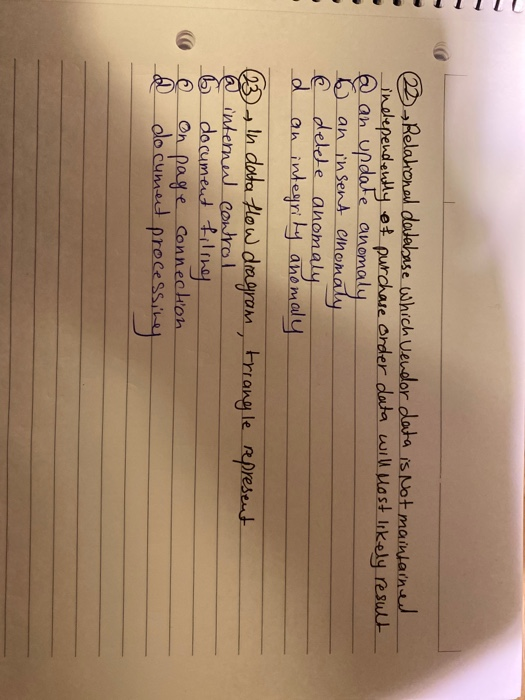 22 → Relational database which vendor data is Not maintained
independently of purchase order data will Most likely result
a) an update anomaly
b) an insert anomaly
c) delete anomaly
d an integrity anomaly
23 → In data flow diagram, triangle represent
a) internal control
b) document filiney
c) on page connection
d) document processiney